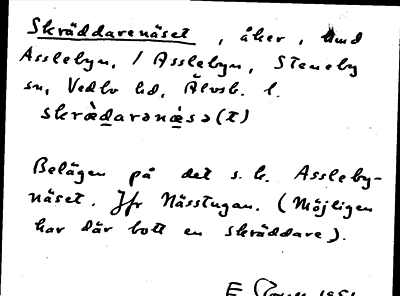 Skräddarenäset, åker, und
Asslebyn, / Asslebyn, Steneby
sn, Vedbo hd, Älvsb. l.
skræ̀darənæ̀sə(t)
Belägen på det s.k. Assleby-
näset. Jfr Nässtugan. (Möjligen
har där bott en skräddare).